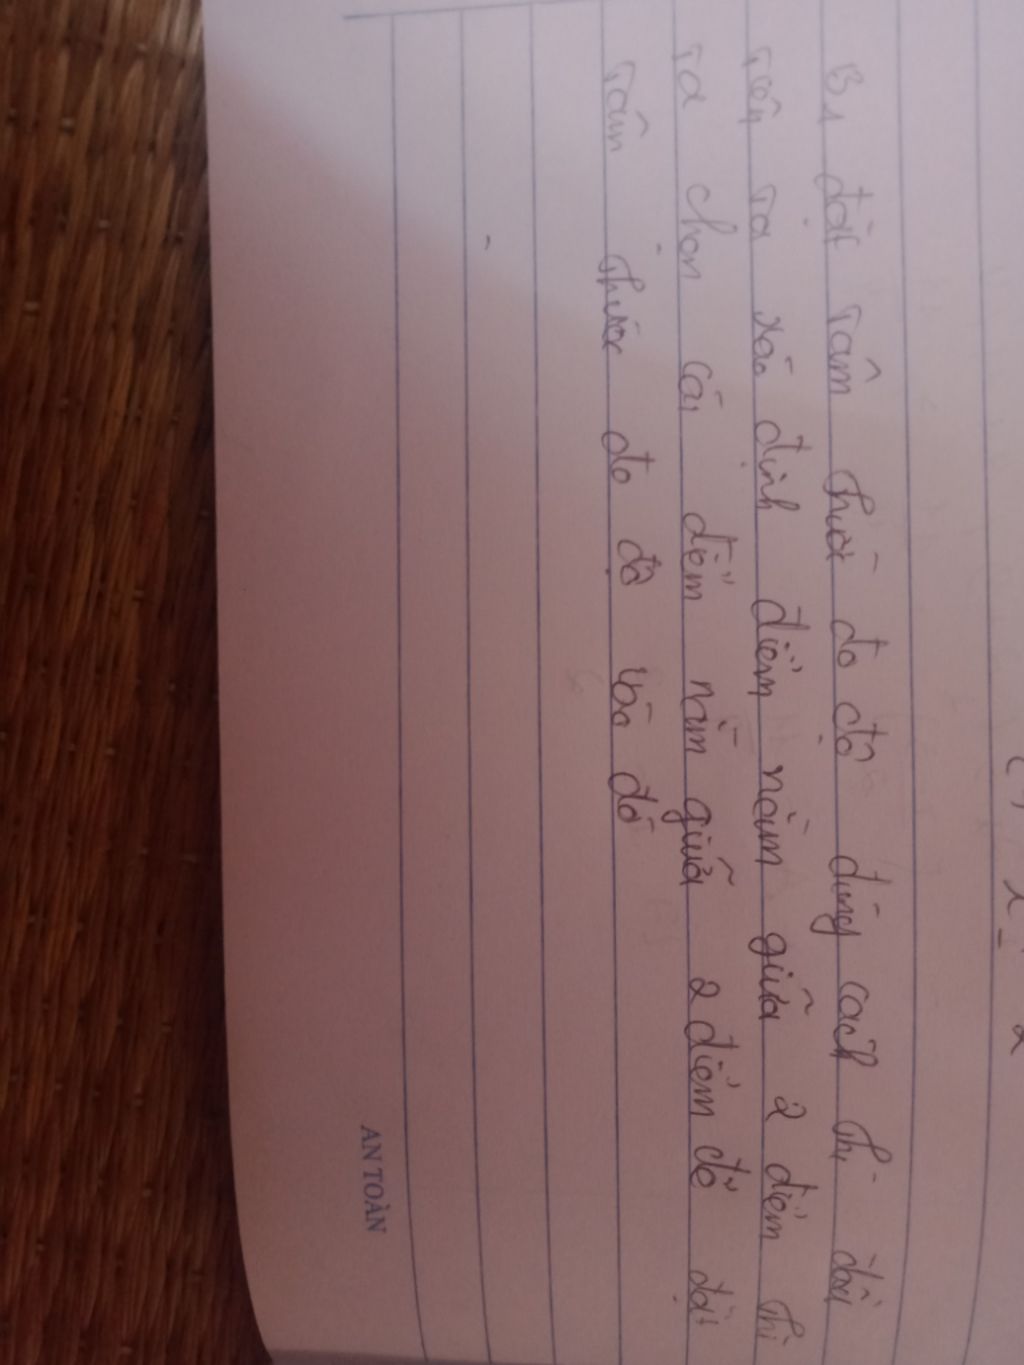 B1 đặt tâm thước đo độ đúng cách thì đầu
tiên ta xác định điểm nằm giữa 2 điểm thì
ta chọn cái điểm nằm giữa 2 điểm để đặt
tâm thước đo độ vào đó
AN TOÀN